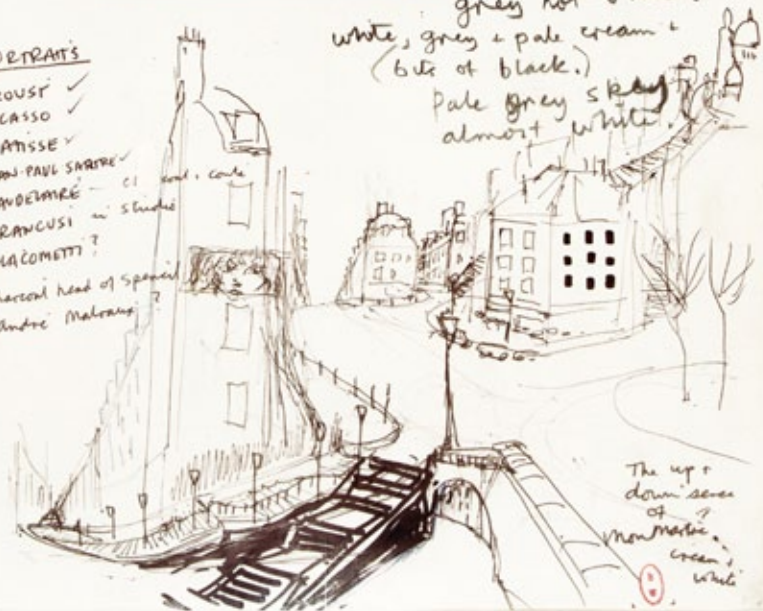 PORTRAITS
ROUST ✓
CASSO ✓
ATISSE ✓
AN-PAUL SARTRE ✓
AUDELAIRE - coat, coat
RANCUSI in studio
IACOMETTI ?
harcoal head of Spencil
André Malraux ?
grey not
white, grey + pale cream +
(bits of black.)
Pale grey sky
almost white.
The up +
down sense
of
Monmartre.
cream +
white